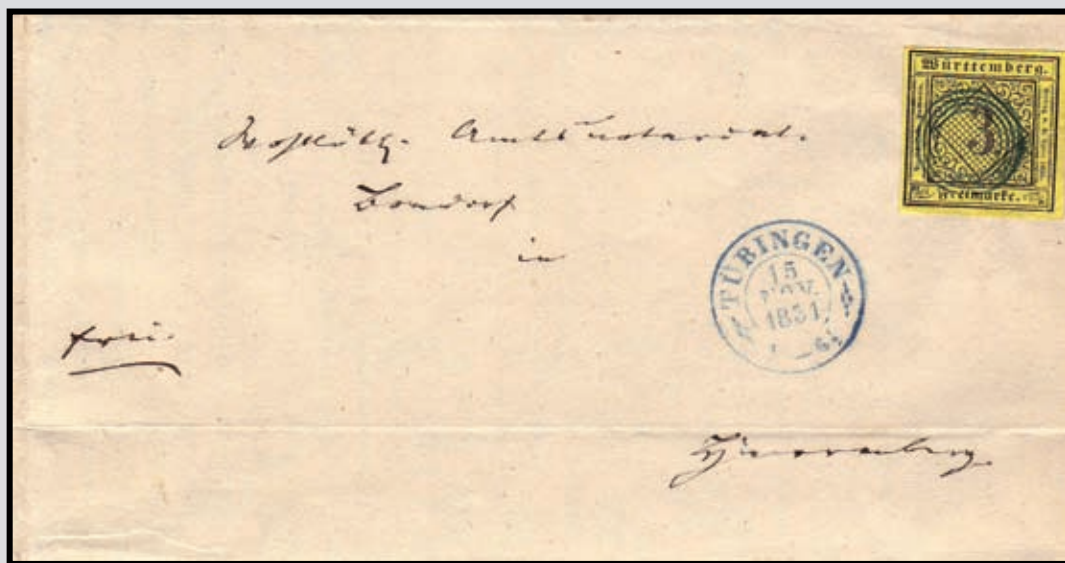 Württemberg.
3
Freimarke.
Amtsnotariat.
Bondorf
in
TÜBINGEN
15
NOV.
1851
frei
Herrenberg